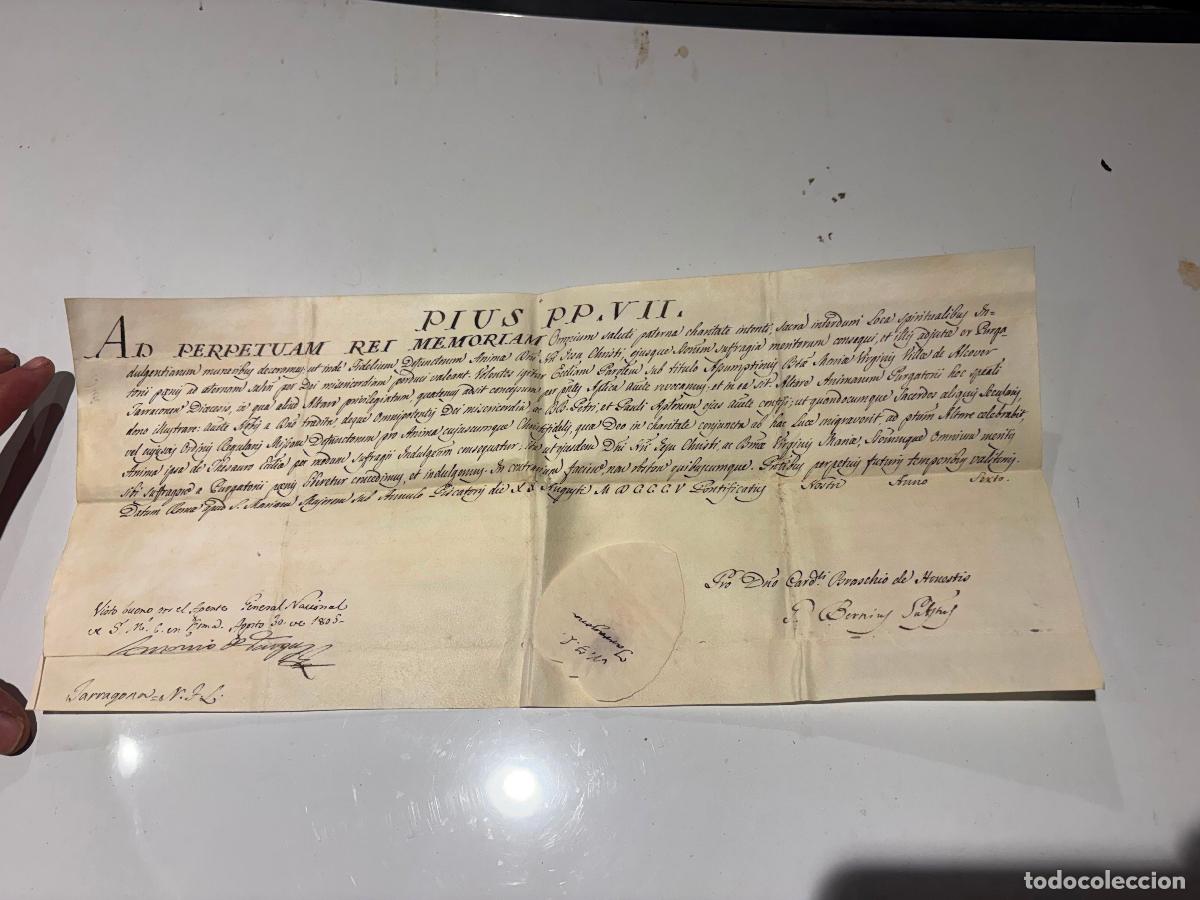 PIUS PP. VII.
AD PERPETUAM REI MEMORIAM Omnium saluti paterna charitate intenti, sacra interdum Loca spiritualibus In-
dulgentiarum muneribus decoramus, ut inde Fidelium Defunctorum Animæ Dni Nri Jesu Christi, ejusque Sctorum suffragia meritorum consequi, et illis adjutæ ex Purga-
torii pœnis ad æternam salutem per Dei misericordiam perduci valeant. Volentes igitur Eccliam Parolem sub titulo Assumptionis Btæ Mariæ Virginis Villæ de Alcover
Tarraconen Diœcesis, in qua aliud Altare privilegiatum quatenus adsit concessum
dono illustrare; Auctte Nobis a Dno tradita, deque Omnipotentis Dei misericordia, ac BB. Petri, et Pauli Aplorum ejus Auctte confisi; ut quandocumque Sacerdos aliquis Secularis,
vel cujusvis Ordinis Regularis Missam Defunctorum pro Anima cujuscumque Christifidelis, quæ Deo in charitate conjuncta ab hac Luce migraverit, ad ptum Altare celebrabit,
Anima ipsa de Thesauro Ecclæ per modum suffragii Indulgtiam consequatur, ita ut ejusdem Dni Nri Jesu Christi, ac Btmæ Virginis Mariæ, Sctorumque Omnium meritis
sibi suffragantibus a Purgatorii pœnis liberetur concedimus, et indulgemus. In contrarium facien non obstan quibuscumque. Præsentibus perpetuis futuris temporibus valituris.
Datum Romæ apud S. Mariam Majorem sub Annulo Piscatoris die Augusti MDCCCV Pontificatus Nostri Anno Sexto.
Pro Dno Card.li Braschio de Honestis
Bernius Subtus
Visto bueno por el Agente General Nacional
de S. M. C. en Roma. Agosto 30 de 1805.
Antonio de Vargas
Tarragona N. I. L.
N. I. L.
Tarragona
todocoleccion